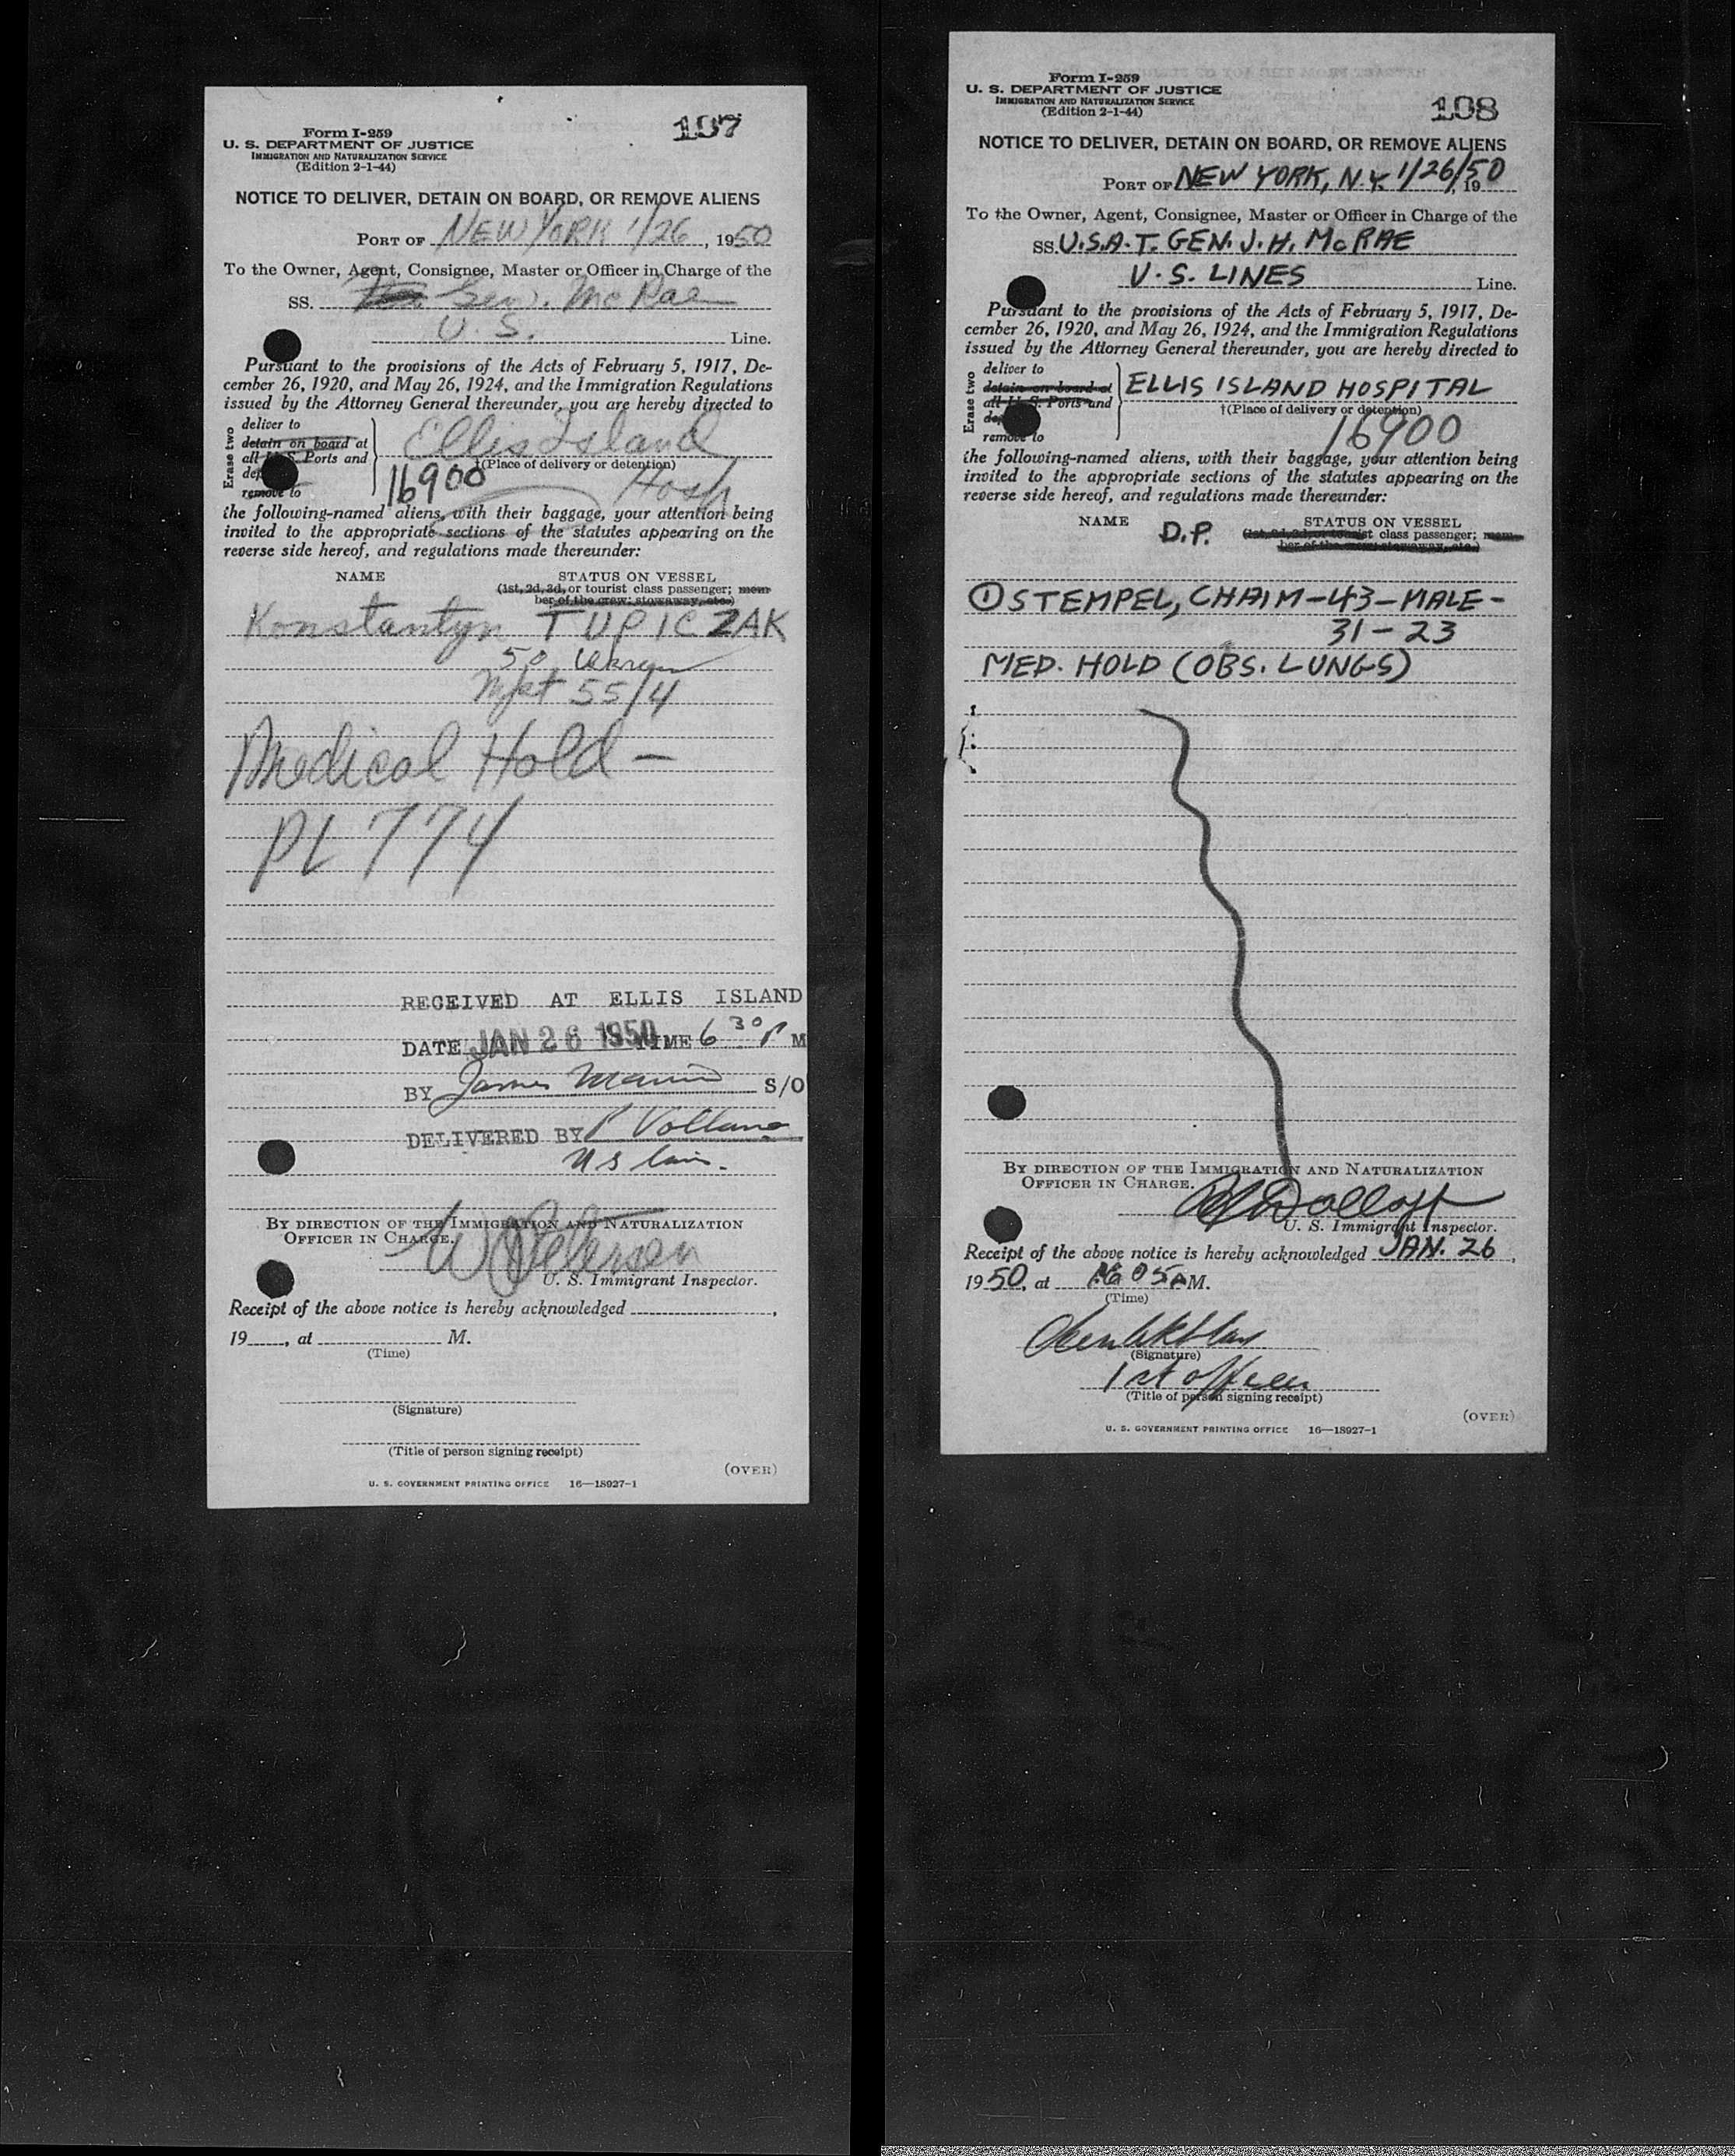 107
Form I-259
U. S. DEPARTMENT OF JUSTICE
IMMIGRATION AND NATURALIZATION SERVICE
(Edition 2-1-44)
NOTICE TO DELIVER, DETAIN ON BOARD, OR REMOVE ALIENS
PORT OF NEW YORK 1/26, 1950
To the Owner, Agent, Consignee, Master or Officer in Charge of the
SS. Gen. McRae
U. S. Line.
Pursuant to the provisions of the Acts of February 5, 1917, De-
cember 26, 1920, and May 26, 1924, and the Immigration Regulations
issued by the Attorney General thereunder, you are hereby directed to
Erase two
deliver to
detain on board at
all U. S. Ports and
remove to
Ellis Island
†(Place of delivery or detention)
16900 Hosp
the following-named aliens, with their baggage, your attention being
invited to the appropriate sections of the statutes appearing on the
reverse side hereof, and regulations made thereunder:
NAME STATUS ON VESSEL
(1st, 2d, 3d, or tourist class passenger; mem-
ber of the crew; stowaway, etc.)
Konstantyn TUPICZAK
50
55/4
Medical Hold —
PL 774
RECEIVED AT ELLIS ISLAND
DATE JAN 26 1950 TIME 6 30 P M
BY James S/O
DELIVERED BY P Vollano
U S
BY DIRECTION OF THE IMMIGRATION AND NATURALIZATION
OFFICER IN CHARGE.
W Petersen
U. S. Immigrant Inspector.
Receipt of the above notice is hereby acknowledged ,
19 , at M.
(Time)
(Signature)
(Title of person signing receipt)
(OVER)
U. S. GOVERNMENT PRINTING OFFICE 16—18927-1
108
Form I-259
U. S. DEPARTMENT OF JUSTICE
IMMIGRATION AND NATURALIZATION SERVICE
(Edition 2-1-44)
NOTICE TO DELIVER, DETAIN ON BOARD, OR REMOVE ALIENS
PORT OF NEW YORK, N.Y. 1/26/50, 19
To the Owner, Agent, Consignee, Master or Officer in Charge of the
SS. U.S.A.T. GEN. J. H. McRAE
U.S. LINES Line.
Pursuant to the provisions of the Acts of February 5, 1917, De-
cember 26, 1920, and May 26, 1924, and the Immigration Regulations
issued by the Attorney General thereunder, you are hereby directed to
Erase two
deliver to
detain on board at
all U. S. Ports and
remove to
ELLIS ISLAND HOSPITAL
†(Place of delivery or detention)
16900
the following-named aliens, with their baggage, your attention being
invited to the appropriate sections of the statutes appearing on the
reverse side hereof, and regulations made thereunder:
NAME D.P. STATUS ON VESSEL
(1st, 2d, 3d, or tourist class passenger; mem-
ber of the crew; stowaway, etc.)
① STEMPEL, CHAIM-43-MALE-
31-23
MED. HOLD (OBS. LUNGS)
BY DIRECTION OF THE IMMIGRATION AND NATURALIZATION
OFFICER IN CHARGE.
U. S. Immigrant Inspector.
Receipt of the above notice is hereby acknowledged JAN. 26,
1950, at 05 A M.
(Time)
(Signature)
1st officer
(Title of person signing receipt)
(OVER)
U. S. GOVERNMENT PRINTING OFFICE 16—18927-1